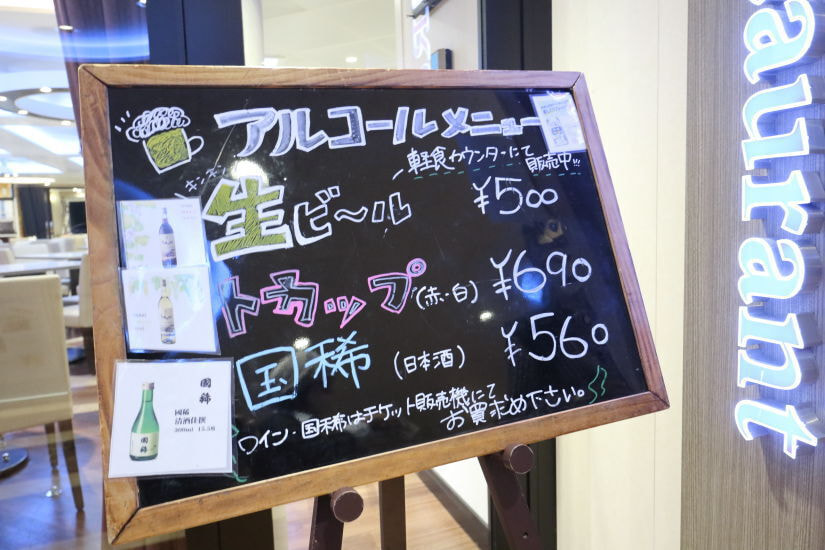 アルコールメニュー
軽食カウンターにて
販売中!!!
キンキン
生ビ〜ル ¥500
トカップ(赤・白) ¥690
国稀(日本酒) ¥560
ワイン・国稀はチケット販売機にて
お買求め下さい。
國稀
國稀
清酒佳撰
300ml 15.5度
國稀
aurant